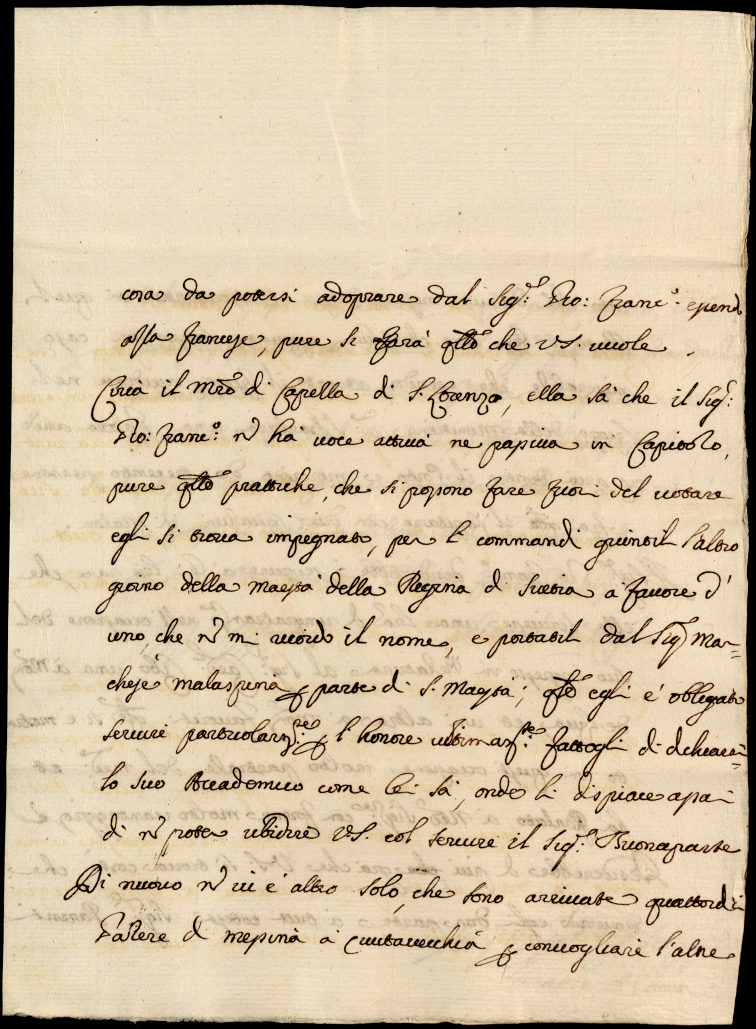 cosa da potersi adoprare dal Sig:re Gio: Franc:o e pend
alla francese, pure si farà qllo che VS. vuole.
Circa il Mro di Capella di S. Lorenzo, ella sà che il Sig:r
Gio: Franc:o nō hà voce attiva ne passiva in Capitolo,
pure qllo prattiche, che si possono fare fuori del votare
egli si trova impegnato, per li commandi giuntili l'altro
giorno della maestà della Regina di Svetia a favore d'
uno, che nō mi ricordo il nome, e portatili dal Sig:r Mar=
chese malaspina p parte di S. Maestà; qllo egli è obligato
servire particolarm:te p l'honore ultimam:te fattogli di dichiarar=
lo suo Accademico come lei sà, onde li dispiace assai
di nō poter ubidire VS. col servire il Sig:r Buonaparte
Di nuovo nō vi è altro solo, che sono arrivate quattordici
Galere di messina a Civitavecchia p convogliare l'altre